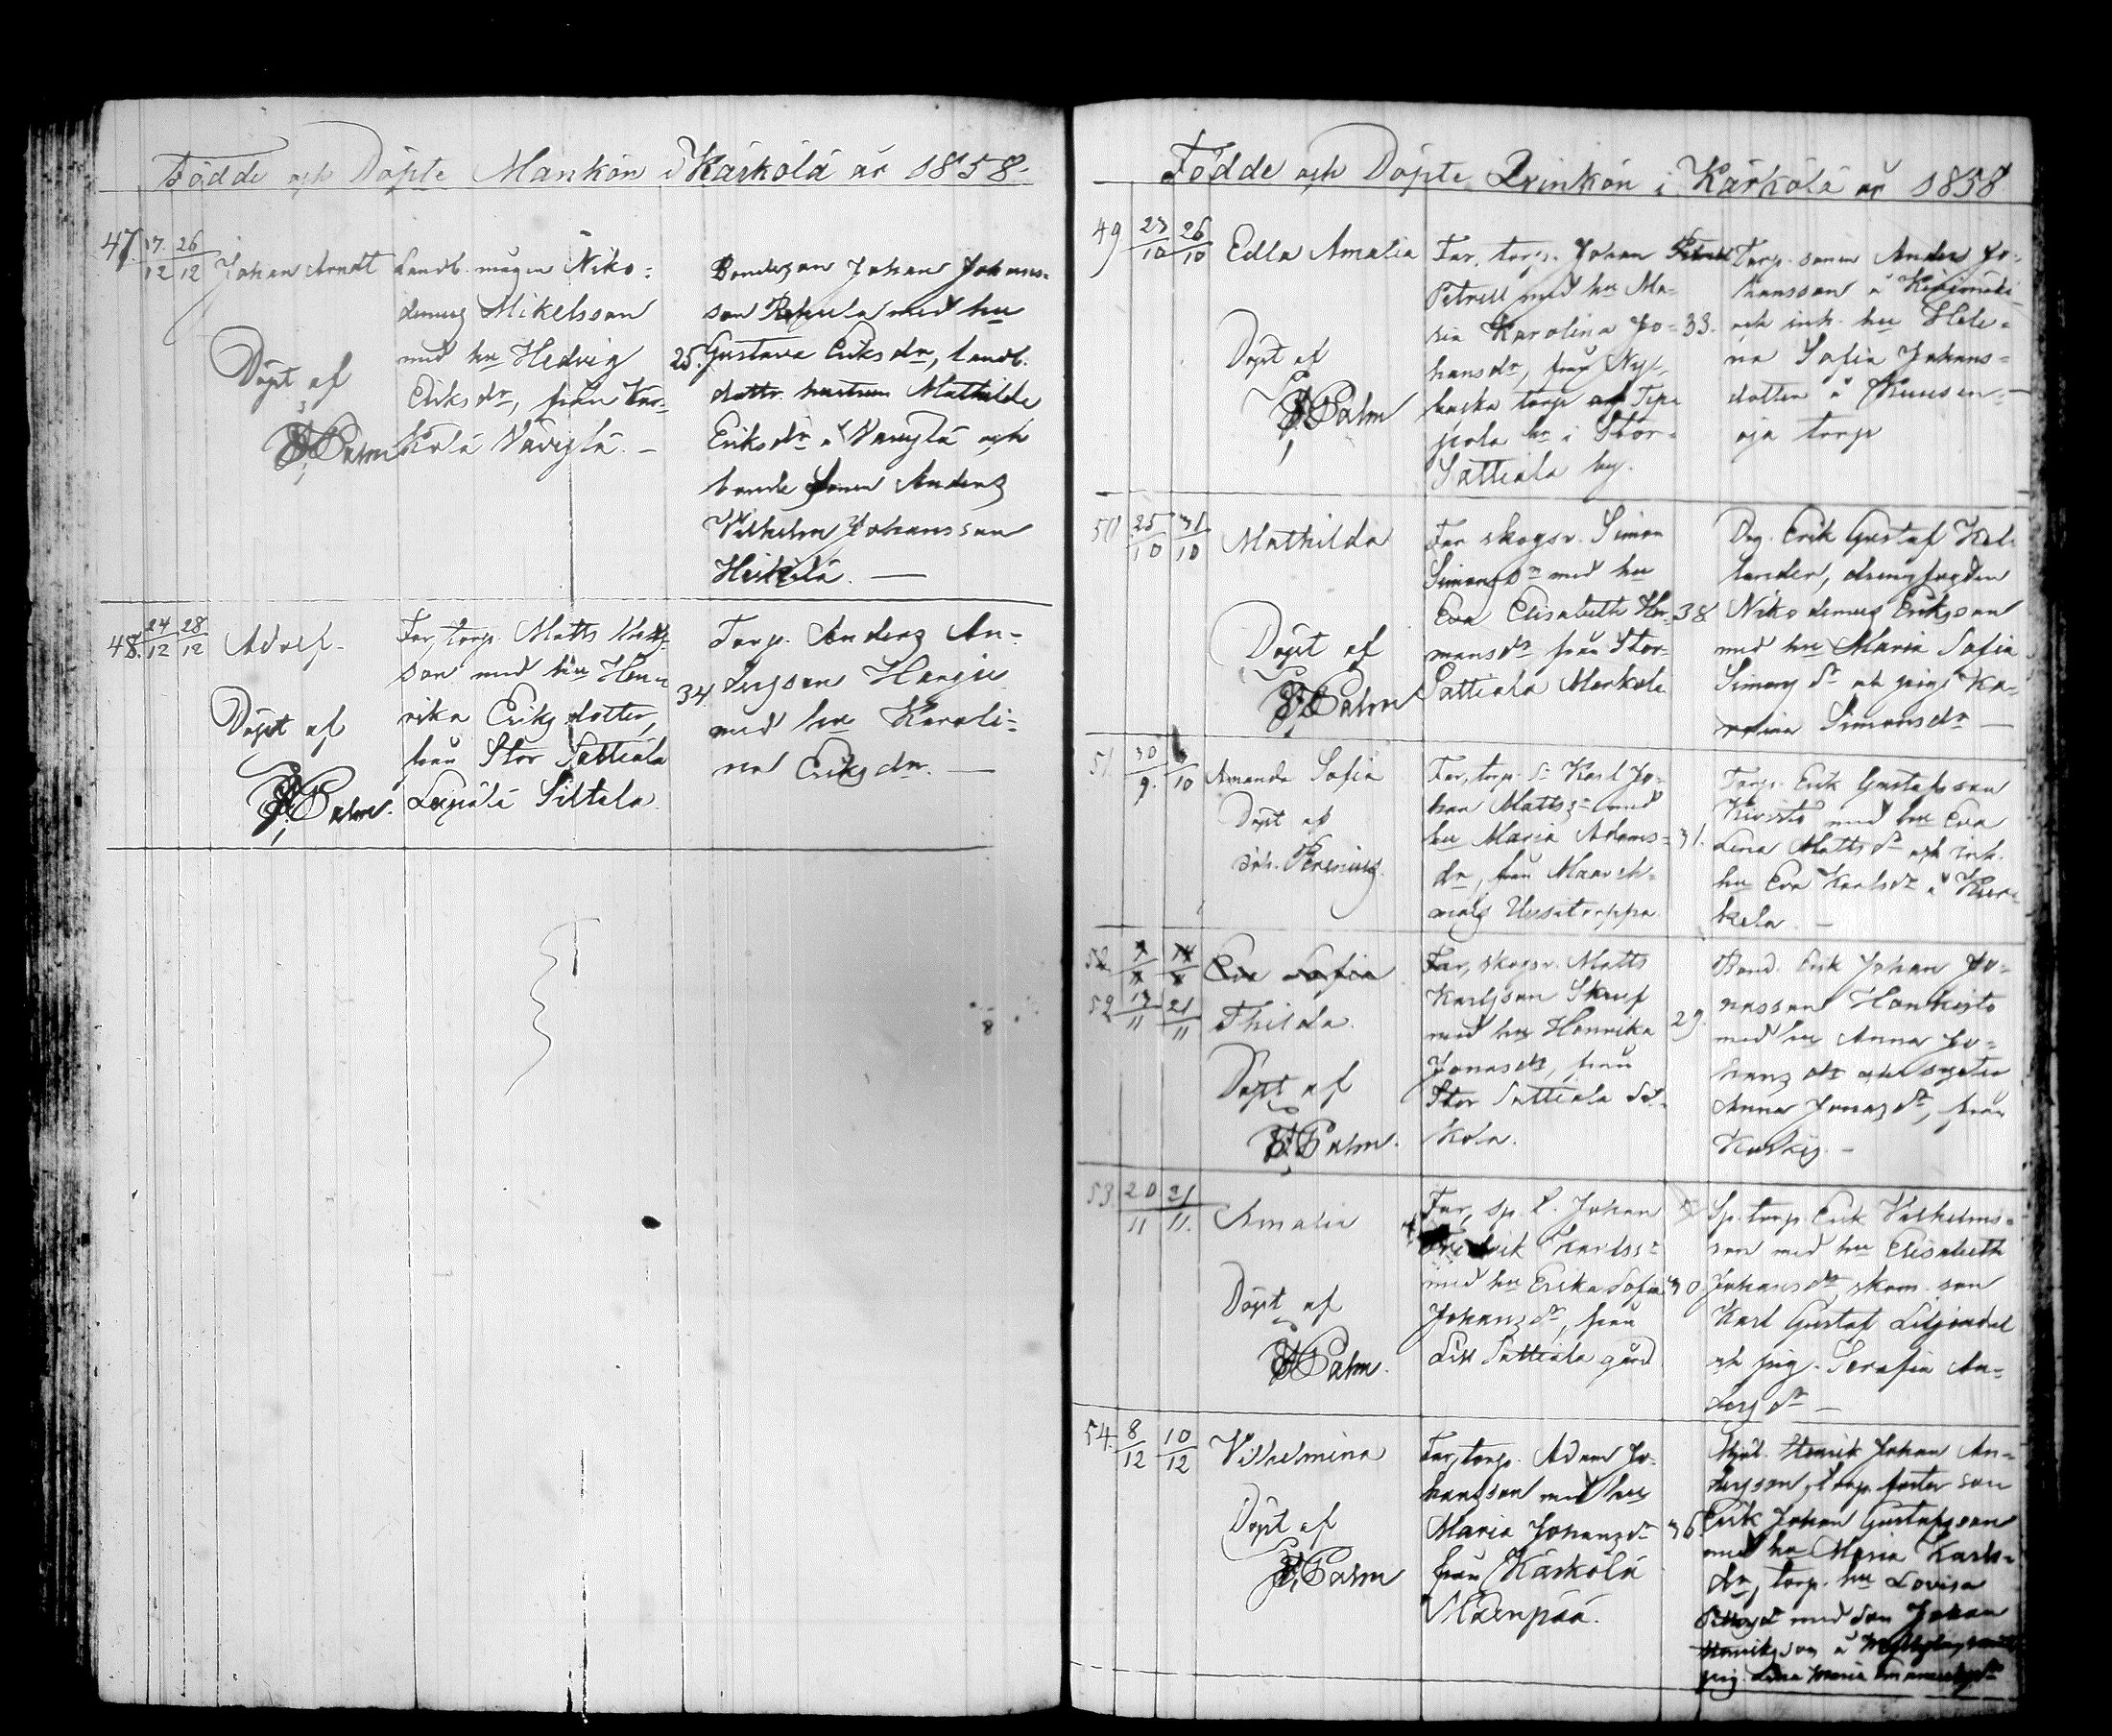 Födde och Döpte Mankön i Kärkölä år 1858.
47. 17/12 26/12 Johan Arndt
Döpt af
Palm
Landb. mågen Niko=
demus Mikelsson
med hu Hedvig
Eriksdr, från Kär=
kölä Väviylä. —
25.
Bondeson Johan Johans=
son med hu
Gustava Eriksdr, landb.
dottr. hustrun Mathilda
Eriksdr och
bonde sonen Anders
Vilhelm Johansson
Heikkilä. —
48. 24/12 28/12 Adolf.
Döpt af
Palm.
Far, torp. Matts
son med hu Hen
rika Eriksdotter,
från Stor Sattiala
Siltala.
34.
Torp. Anders An=
dersson
med hu Karoli=
na Eriksdr. —
Födde och Döpte Qvinkön i Kärkölä år 1858
49 23/10 26/10 Edla Amalia
Döpt af
Palm
Far, torp. Johan
Petrell med hu Ma=
ria Karolina Jo=
hansdr, från Nyl
backa torp
pola hn i Stor=
Sattiala by.
33.
Torp. sonen Anders Jo=
hansson å
och inh. hu Hele=
na Sofia Johans=
dotter å Kuusen=
oja torp
50 25/10 31/10 Mathilda
Döpt af
Palm
Far skogsv. Simon
Simonsson med hu
Eva Elisabeth Her=
mansdr från Stor=
Sattiala Markola
38
Drg. Erik Gustaf Kel
lander, drengfogden
Nikodemus Eriksson
med hu Maria Sofia
Simonsdr och pig. Ka=
rolina Simonsdr —
51. 30/9. /10 Amanda Sofia
Döpt af
Joh.
Far, torp. Karl Jo=
han Mattss. med
hu Maria Adams=
dr, från
31.
Torp. Erik Gustafsson
Kivistö med hu Eva
Lena Mattsdr och inh.
hu Eva Karlsdr å
kela. —
52. Eva Sofia
52 13/11 21/11 Thilda.
Döpt af
Palm.
Far, skogsv. Matts
Karlsson Skruf
med hu Henrika
Jonasdr, från
Stor Sattiala
kola.
29.
Bond. Erik Johan Jo=
nasson Hankisto
med hu Anna Jo=
hansdr och syster
Anna Jonasdr, från
Koskis. —
53. 20/11 21/11. Amalia
Döpt af
Palm.
Far, sp. t. Johan
Fredrik Karlss:
med hu Erika Sofia
Johansdr, från
Lill Sattiala gård
30
Sp. torp. Erik Vilhelms=
son med hu Elisabeth
Johansdr, skom. son
Karl Gustaf Liljendal
och pig. Serafia An=
dersdr —
54. 8/12 10/12 Vilhelmina
Döpt af
Palm
Far, torp. Adam Jo=
hansson med hu
Maria Johansdr
från Kärkölä
Mäenpää.
36.
Mjöl. Henrik Johan An=
dersson, torp. foster son
Erik Johan Gustafsson
med hu Maria Karls=
dr, torp. hu Lovisa
med son Johan
Henriksson å
pig. Lena Maria